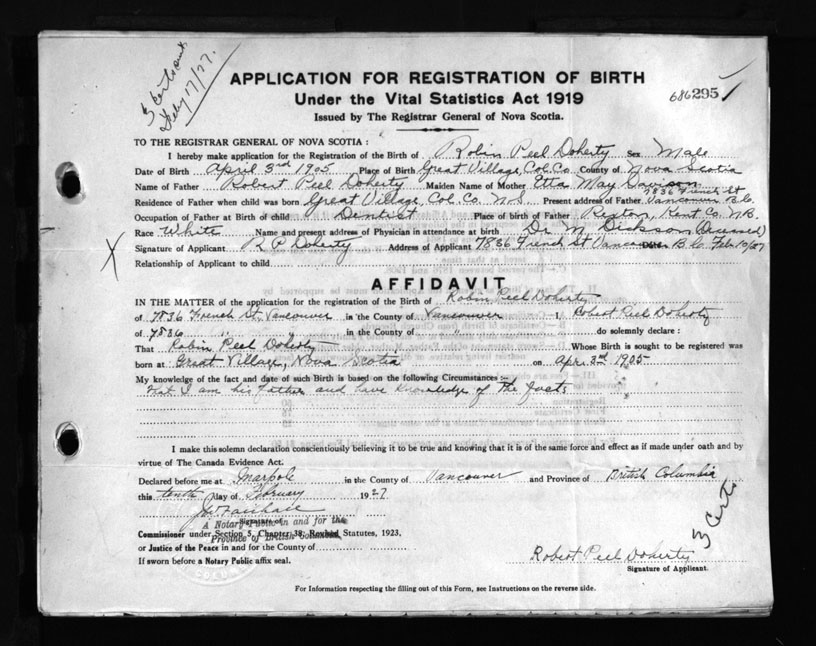 3 Certs sent
Feby 17/27.
APPLICATION FOR REGISTRATION OF BIRTH
Under the Vital Statistics Act 1919
Issued by The Registrar General of Nova Scotia.
686295
TO THE REGISTRAR GENERAL OF NOVA SCOTIA:
I hereby make application for the Registration of the Birth of Robin Peel Doherty Sex Male
Date of Birth April 3rd 1905 Place of Birth Great Village, Col. Co. County of Nova Scotia
Name of Father Robert Peel Doherty Maiden Name of Mother Etta May
7836 French St
Residence of Father when child was born Great Village, Col. Co. N.S. Present address of Father Vancouver B.C.
Occupation of Father at Birth of child Dentist Place of birth of Father Rexton, Kent. Co. N.B.
Race White Name and present address of Physician in attendance at birth Dr M. Dickson (Deceased)
Signature of Applicant R P Doherty Address of Applicant 7836 French St Vancouver Date B.C. Feb. 10/27
Relationship of Applicant to child
X
AFFIDAVIT
IN THE MATTER of the application for the registration of the Birth of Robin Peel Doherty
of 7836 French St, Vancouver in the County of Vancouver I, Robert Peel Doherty
of 7836 " " in the County of " do solemnly declare:
That Robin Peel Doherty Whose Birth is sought to be registered was
born at Great Village, Nova Scotia on Apr. 3rd 1905
My knowledge of the fact and date of such Birth is based on the following Circumstances:—
That I am his father and have knowledge of the facts
I make this solemn declaration conscientiously believing it to be true and knowing that it is of the same force and effect as if made under oath and by
virtue of The Canada Evidence Act.
Declared before me at Marpole in the County of Vancouver and Province of British Columbia
this tenth day of February 1927
Signature of
A Notary Public in and for the
Province of British Columbia
Commissioner under Section 5, Chapter 38, Revised Statutes, 1923,
or Justice of the Peace in and for the County of
If sworn before a Notary Public affix seal.
3 Certs
Robert Peel Doherty
Signature of Applicant.
For Information respecting the filling out of this Form, see Instructions on the reverse side.